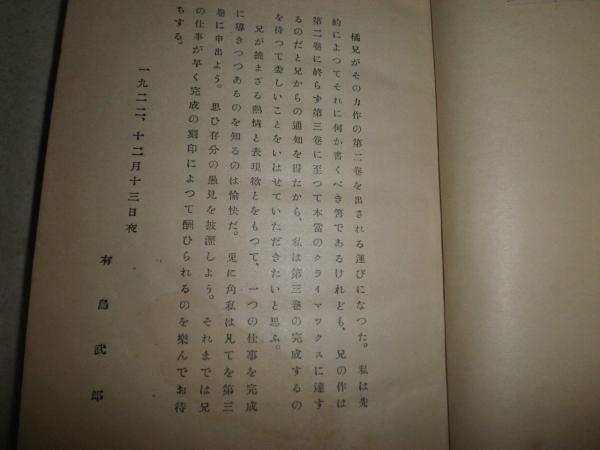 橘兄がその力作の第二卷を出される運びになつた。私は先
約によつてそれに何か書くべき筈であるけれども、兄の作は
第二卷に終らず第三卷に至つて本當のクライマックスに達す
るのだと兄からの通知を得たから、私は第三卷の完成するの
を待つて委しいことをいはせていただきたいと思ふ。
兄が撓まざる熱情と表現欲とをもつて、一つの仕事を完成
に導きつつあるのを知るのは愉快だ。兎に角私は凡てを第三
卷に申出よう。思ひ存分の愚見を披瀝しよう。それまでは兄
の仕事が早く完成の刻印によつて酬ひられるのを樂んでお待
ちする。
一九二二、十二月十三日夜
有島武郎